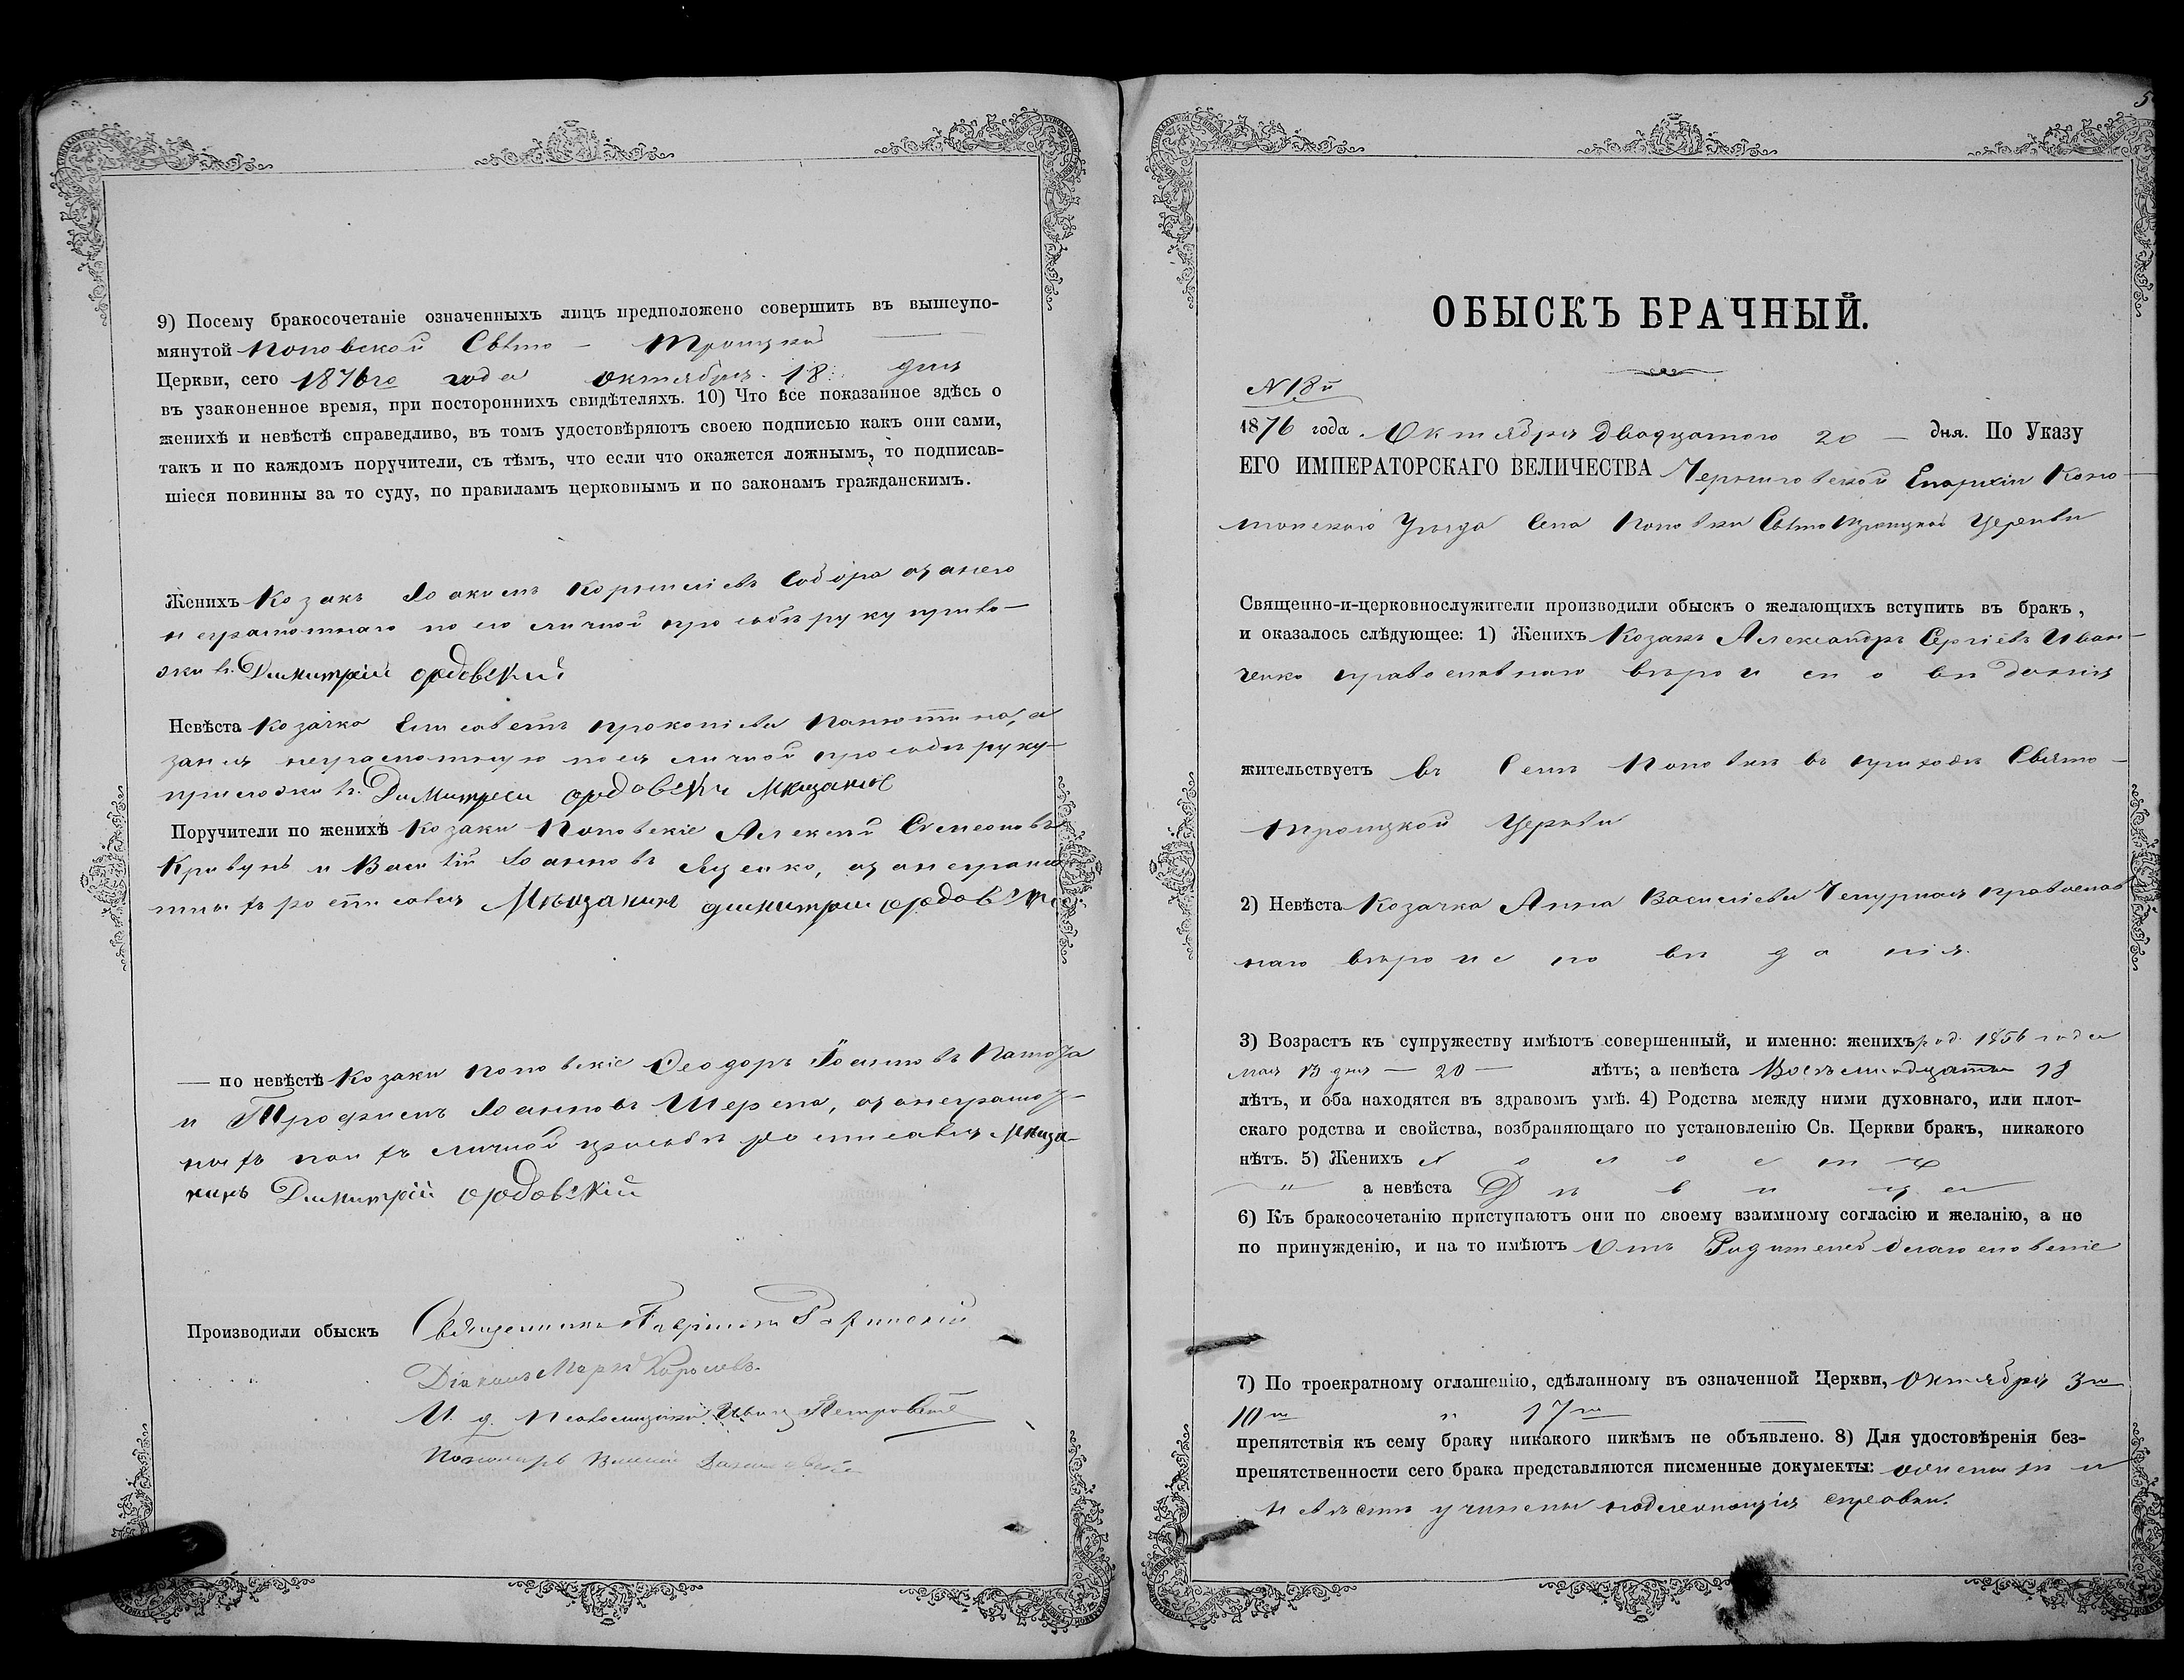 9) Посему бракосочетаніе означенныхъ лицъ предположено совершить въ вышеупо-
мянутой Поповской Свѣто - Троицкой
Церкви, сего 1876го года октября 18 дня
въ узаконенное время, при постороннихъ свидѣтеляхъ. 10) Что все показанное здѣсь о
женихѣ и невѣстѣ справедливо, въ томъ удостовѣряютъ своею подписью какъ они сами,
такъ и по каждомъ поручители, съ тѣмъ, что если что окажется ложнымъ, то подписав-
шіеся повинны за то суду, по правиламъ церковнымъ и по законамъ гражданскимъ.
Женихъ Козакъ Іоакимъ Корниліевъ а за него
неграмотнаго по его личной прозьбѣ руку прило-
жилъ Димитрій ордовскій
Невѣста Козачка Елисаветъ Прокопіева а
за нея неграмотную по ея личной прозьбѣ руку
приложилъ
Поручители по женихѣ Козаки Поповскіе Алексѣй Симеоновъ
Кривунъ и Василій Іоанновъ Яценко, а за неграмо
тныхъ росписался Мѣщанинъ димитрій ордовскій
— по невѣстѣ Козаки Поповскіе Ѳеодоръ Іоанновъ
и Трофимъ Іоанновъ Шерепа, а за неграмот-
ныхъ по ихъ личной прозьбѣ росписался Мѣща-
нинъ Димитрій ордовскій
Производили обыскъ Священникъ Гавріилъ
Діаконъ Маркъ
И. д. Псаломщика Иванъ
Пономарь
ОБЫСКЪ БРАЧНЫЙ.
N 18й
1876 года Октября двадцатого 20 — дня. По Указу
ЕГО ИМПЕРАТОРСКАГО ВЕЛИЧЕСТВА Черниговской Епархіи Коно-
топскаго Уѣзда Села Поповки Свѣто Троицкой Церкви
Священно-и-церковнослужители производили обыскъ о желающихъ вступить въ бракъ,
и оказалось слѣдующее: 1) Женихъ Козакъ Александръ Сергіевъ Иван-
ченко православнаго вѣроисповѣданія
жительствуетъ въ Селѣ Поповкѣ въ приходѣ Свѣто-
Троицкой Церкви
2) Невѣста Козачка Анна Василіева Чепурная православ
наго вѣроисповѣданія.
3) Возрастъ къ супружеству имѣютъ совершенный, и именно: женихъ род. 1856 года
мая 13 дня — 20 — лѣтъ; а невѣста Восемьнадцать 18
лѣтъ, и оба находятся въ здравомъ умѣ. 4) Родства между ними духовнаго, или плот-
скаго родства и свойства, возбраняющаго по установленію Св. Церкви бракъ, никакого
нѣтъ. 5) Женихъ холостъ
" а невѣста Дѣвица
6) Къ бракосочетанію приступаютъ они по своему взаимному согласію и желанію, а не
по принужденію, и на то имѣютъ Отъ Родителей благословеніе
7) По троекратному оглашенію, сдѣланному въ означенной Церкви, Октября 3го
10го и 17го
препятствія къ сему браку никакого никѣмъ не объявлено. 8) Для удостовѣренія без-
препятственности сего брака представляются писменные документы: о женихѣ и
невѣстѣ учинены надлежащія справки.